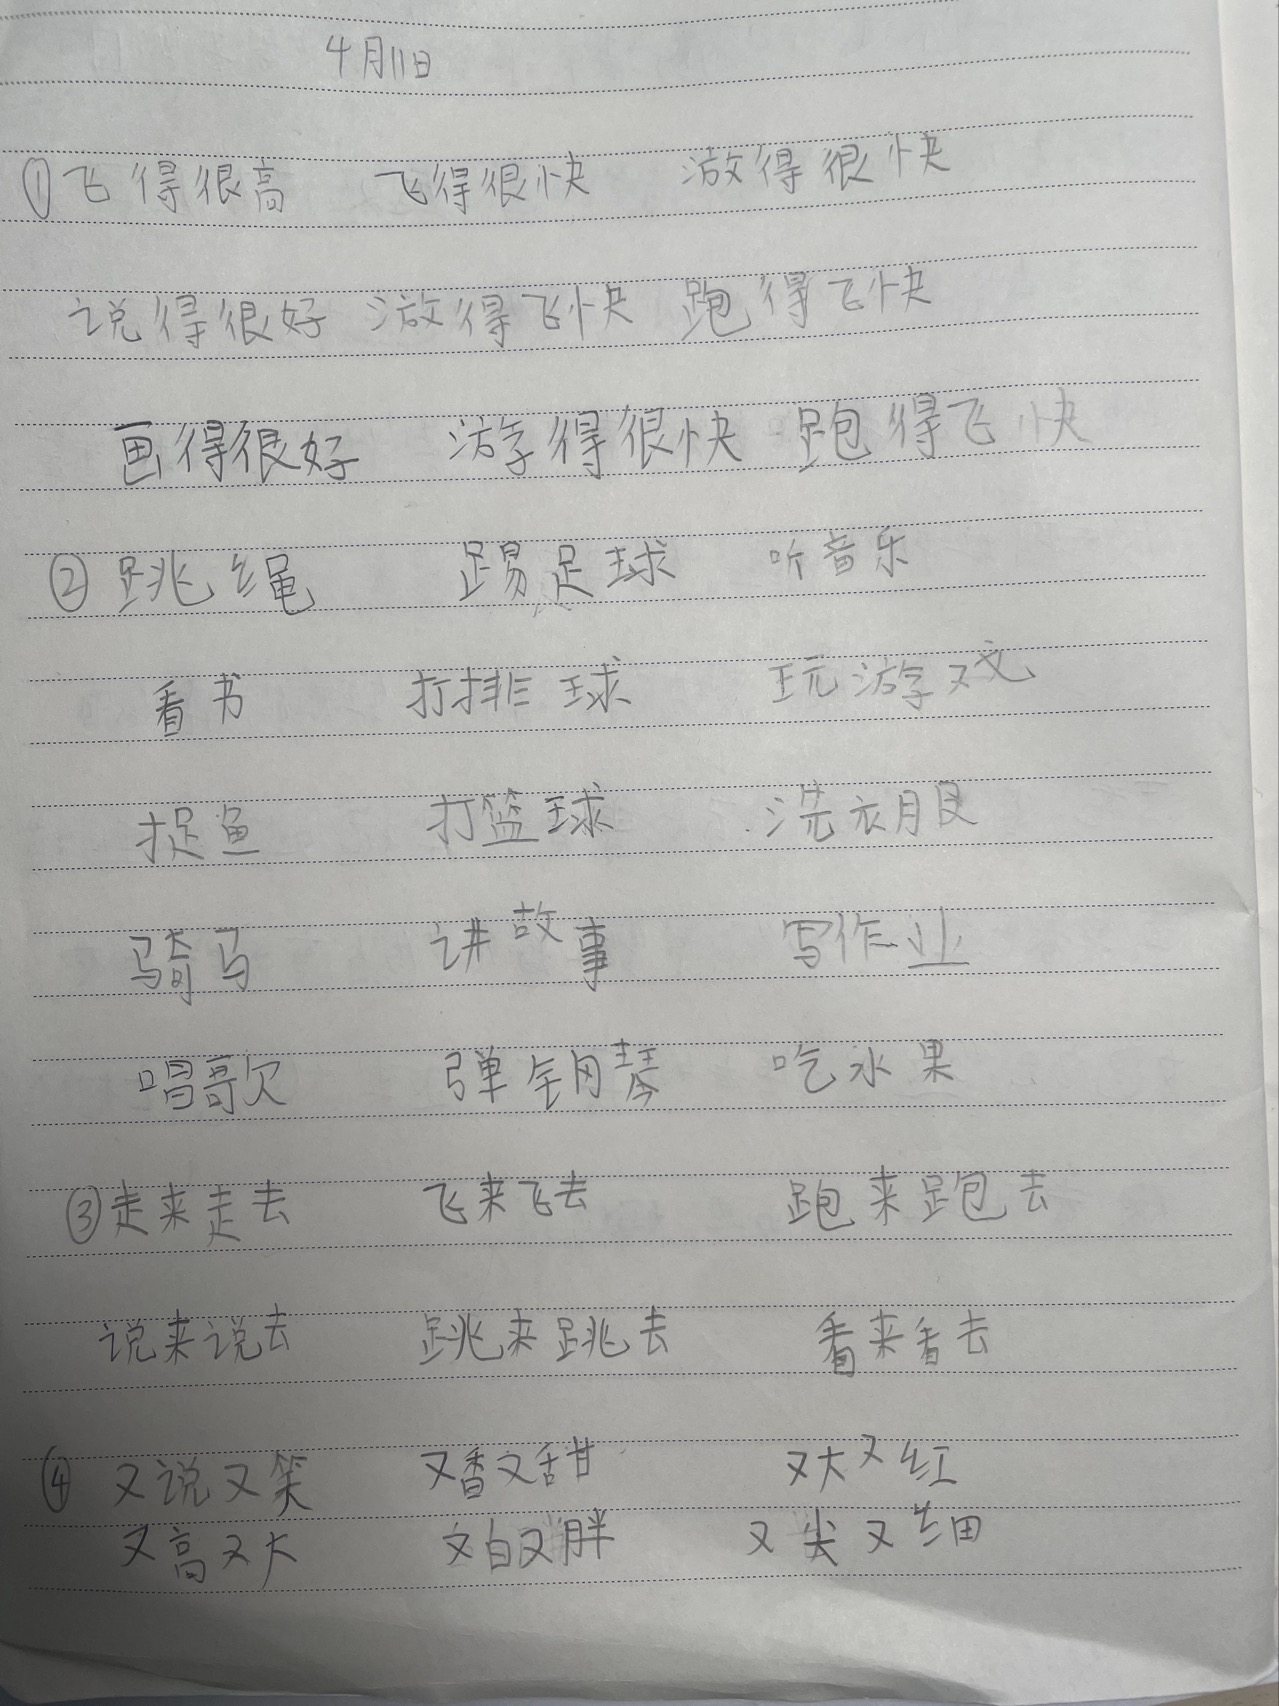 4月11日
①飞得很高 飞得很快 游得很快
说得很好 游得飞快 跑得飞快
画得很好 游得很快 跑得飞快
②跳绳 踢足球 听音乐
看书 打排球 玩游戏
捉鱼 打篮球 洗衣服
骑马 讲故事 写作业
唱歌 弹钢琴 吃水果
③走来走去 飞来飞去 跑来跑去
说来说去 跳来跳去 看来看去
④又说又笑 又香又甜 又大又红
又高又大 又白又胖 又尖又细